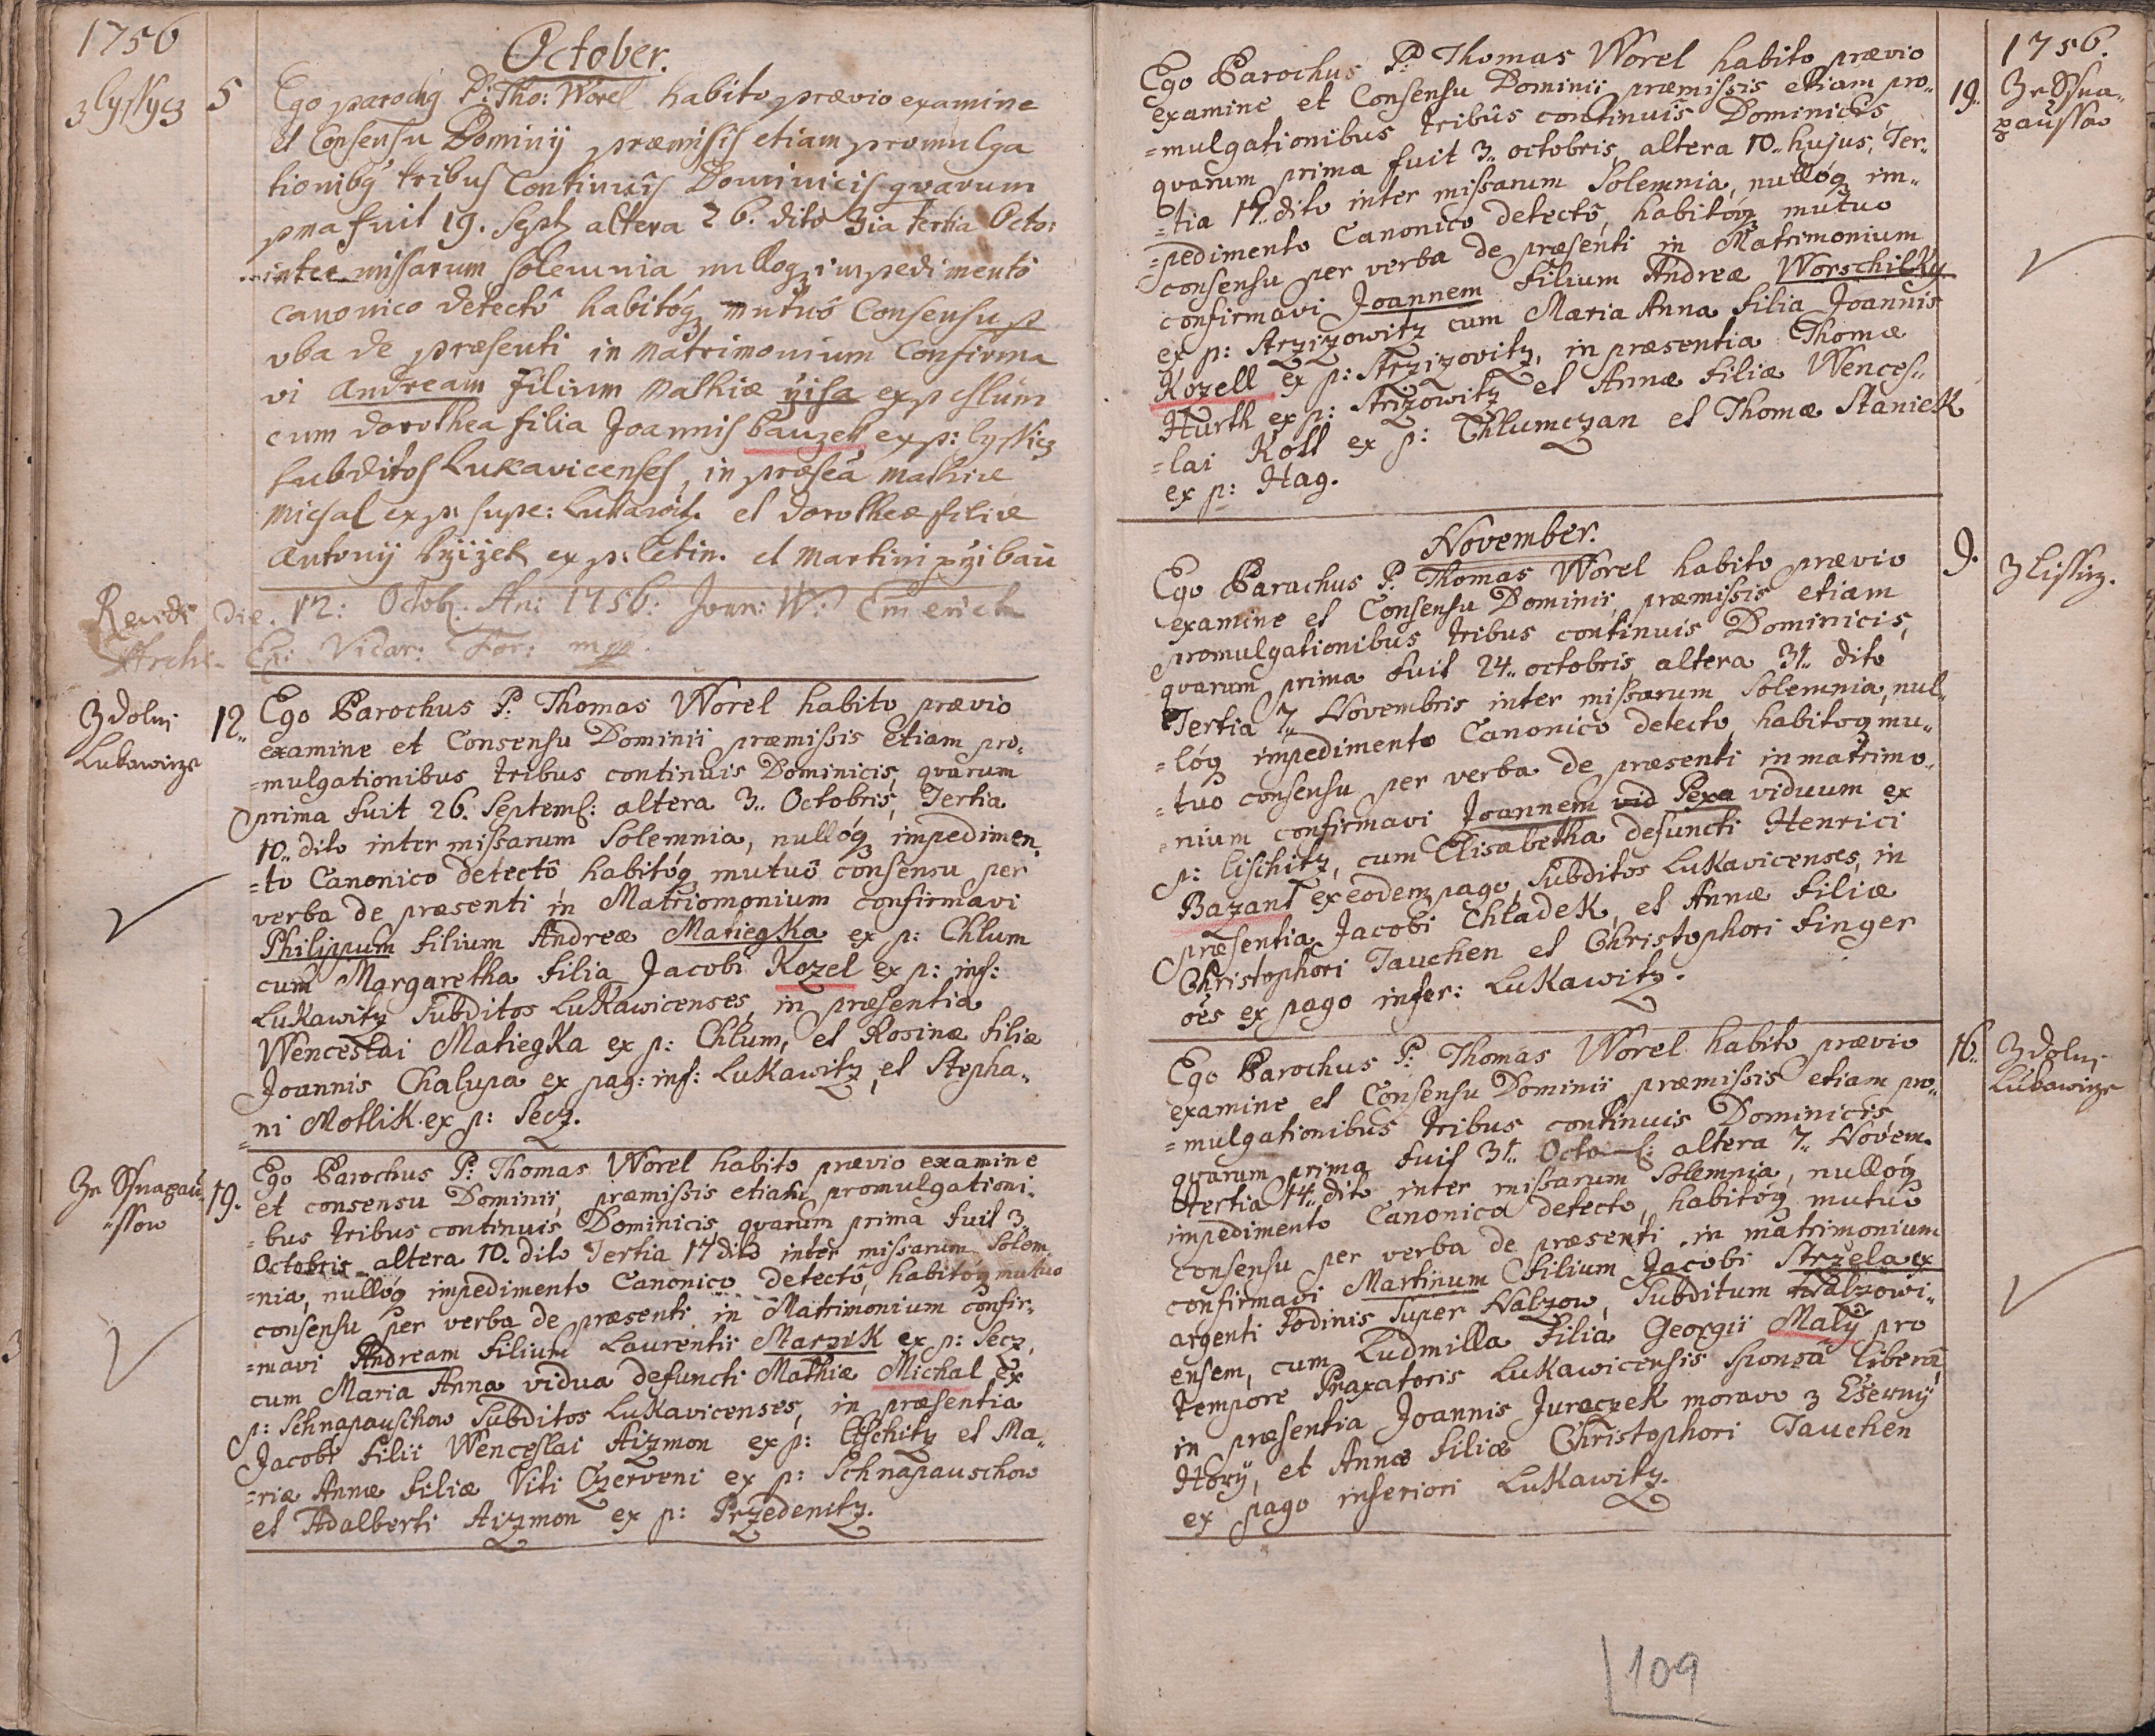 1756
October.
zlyssycz 5 Ego parochg P: Tho: Worel habito prævio examine
et Consensu Dominij præmissis etiam promulga
tionibg tribus Continuis Dominicis qvarum
pma fuit 19. Sept altera 26. dito 3ia tertia Octo:
inter missarum solemnia nullog impedimentô
canonico detectô habitóg mutuô Consensu p
vba de præsenti in Matrimonium Confirma
vi andream filium Mathiæ ÿisa ex p Chlúm
cum dorothea filia Joannis bauzek ex p: lyssicz
subditos Lukavicenses, in præseá Mathiæ
Micsal ex p: supe: Lukawitz et dorotheæ filiæ
antonij kÿizek ex p: letin. et Martini pzibaú
Revidi die. 12: Octob. An: 1756: Joan: W: Emerich
Archi- Ep: Vicar: For: mpp.
Zdolnj Lukawicze 12. Ego Parochus P: Thomas Worel habito prævio
examine et Consensu Dominii præmissis etiam pro-
=mulgationibus tribus continuis Dominicis, qvarum
prima fuit 26. Septemb: altera 3.. Octobris, Tertia
10.. dito inter missarum Solemnia, nullóg impedimen.
=to Canonico detectô habitóg mutuô consensu per
verba de præsenti in Matriomonium confirmavi
Philippum filium Andreæ Matiegka ex p: Chlum
cum Margaretha filia Jacobi Kozel ex p: inf:
Lukawitz Subditos Lukawicenses, in præsentia
Wenceslai Matiegka ex p: Chlum, et Rosinæ filiæ
Joannis Chalupa ex pag: inf: Lukawitz, et Stepha-
=ni Motlik ex p: Secz.
Ze Ssnapaússow 19. Ego Parochus P: Thomas Worel habito prævio examine
et consensu Dominii, præmissis etiam promulgationi-
=bus tribus continuis Dominicis qvarum prima fuit 3..
Octobris altera 10. dito Tertia 17 dito inter missarum Solem
=nia, nullóg impedimento Canonico detectô, habitóg mutuo
consensu per verba de præsenti in Matrimonium confir-
=mavi Andream filium Laurentii Marzik ex p: Secz,
cum Maria Anna vidua defuncti Mathiæ Michal ex
p: Schnapauschow Subditos Lukavicenses, in præsentia
Jacobi filii Wenceslai Aizmon ex p: Lischitz et Ma-
=riæ Annæ filiæ Viti Czerveni ex p: Schnapauschow
et Adalberti Aizmon ex p: Przedenitz.
1756.
Ze Ssnapaússow 19. Ego Parochus P: Thomas Worel habito prævio
examine et Consensu Dominii præmissis etiam pro-
=mulgationibus tribûs continuis Dominicis,
qvarum prima fuit 3.. octobris, altera 10.. hujus, Ter-
=tia 17.. dito inter missarum Solemnia, nullóg im-
=pedimento Canonico detectô, habitóg mutuo
consensu per verba de præsenti in Matrimonium
confirmavi Joannem filium Andreæ Worschilky
ex p: Strzizowitz cum Maria Anna filia Joannis
Kozell ex p: Strzizovitz, in præsentia Thomæ
Hurth ex p: Strizowitz et Annæ filiæ Wences-
=lai Koll ex p: Chlumczan et Thomæ Staniek
ex p: Hag.
November.
9. zlissicz. Ego Parachus P: Thomas Worel habito prævio
examine et Consensu Dominii, præmissis etiam
promulgationibus tribus continuis Dominicis,
qvarum prima fuit 24.. octobris altera 31.. dito
Tertia 7.. Novembris inter missarum Solemnia, nul-
=lóg impedimento Canonico detecto, habitog mu-
=tuo consensu per verba de præsenti in matrimo-
=nium confirmavi Joannem vid Pexa viduum ex
p: Lischitz, cum Elisabetha defuncti Henrici
Bazant ex eodem pago, Subditos Lukavicenses, in
præsentia Jacobi Chladek, et Annæ filiæ
Christophori Tauchen et Christophori Finger
oes ex pago infer: Lukawitz.
16. Zdolnj Lúkawicze Ego Parochus P: Thomas Worel habito prævio
examine et Consensu Dominii præmissis etiam pro-
=mulgationibus tribus continuis Dominicis
qvarum prima fuit 31.. Octob: altera 7.. Novem.
tertia 14.. dito inter missarum Solemnia, nullóg
impedimento Canonico detecto, habitóg mutuo
consensu per verba de præsenti in matrimonium
confirmavi Martinum filium Jacobi Strzela ex
argenti fodinis super Nalzow, Subditum Nalzowi-
ensem, cum Ludmilla filia Georgii Malÿ pro
tempore Praxatoris Lukawicensis sponsâ liberâ,
in præsentia Joannis Juraczek moravo z Eserny
Hory, et Annæ filiæ Christophori Tauchen
ex pago inferiori Lukawitz.
109